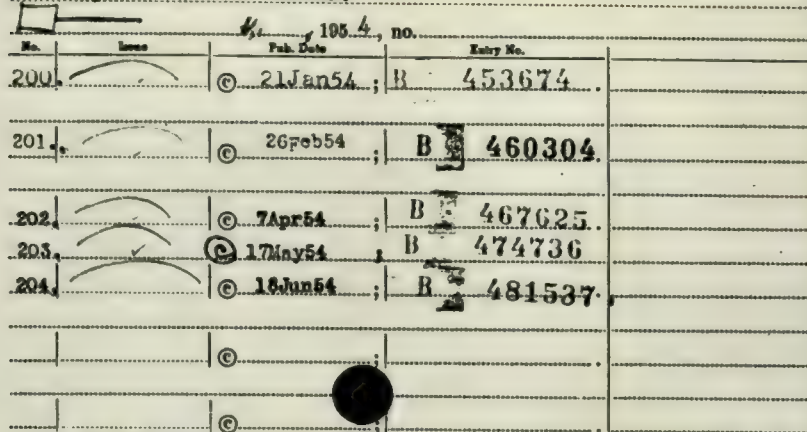 , 195 4, no.
No. Issue Pub. Date Entry No.
200. © 21Jan54 ; B 453674 .
201. © 26Feb54 ; B 460304.
202. © 7Apr54 ; B 467625.
203. © 17May54 ; B 474736
204. © 18Jun54 ; B 481537.
© ; .
© ; .